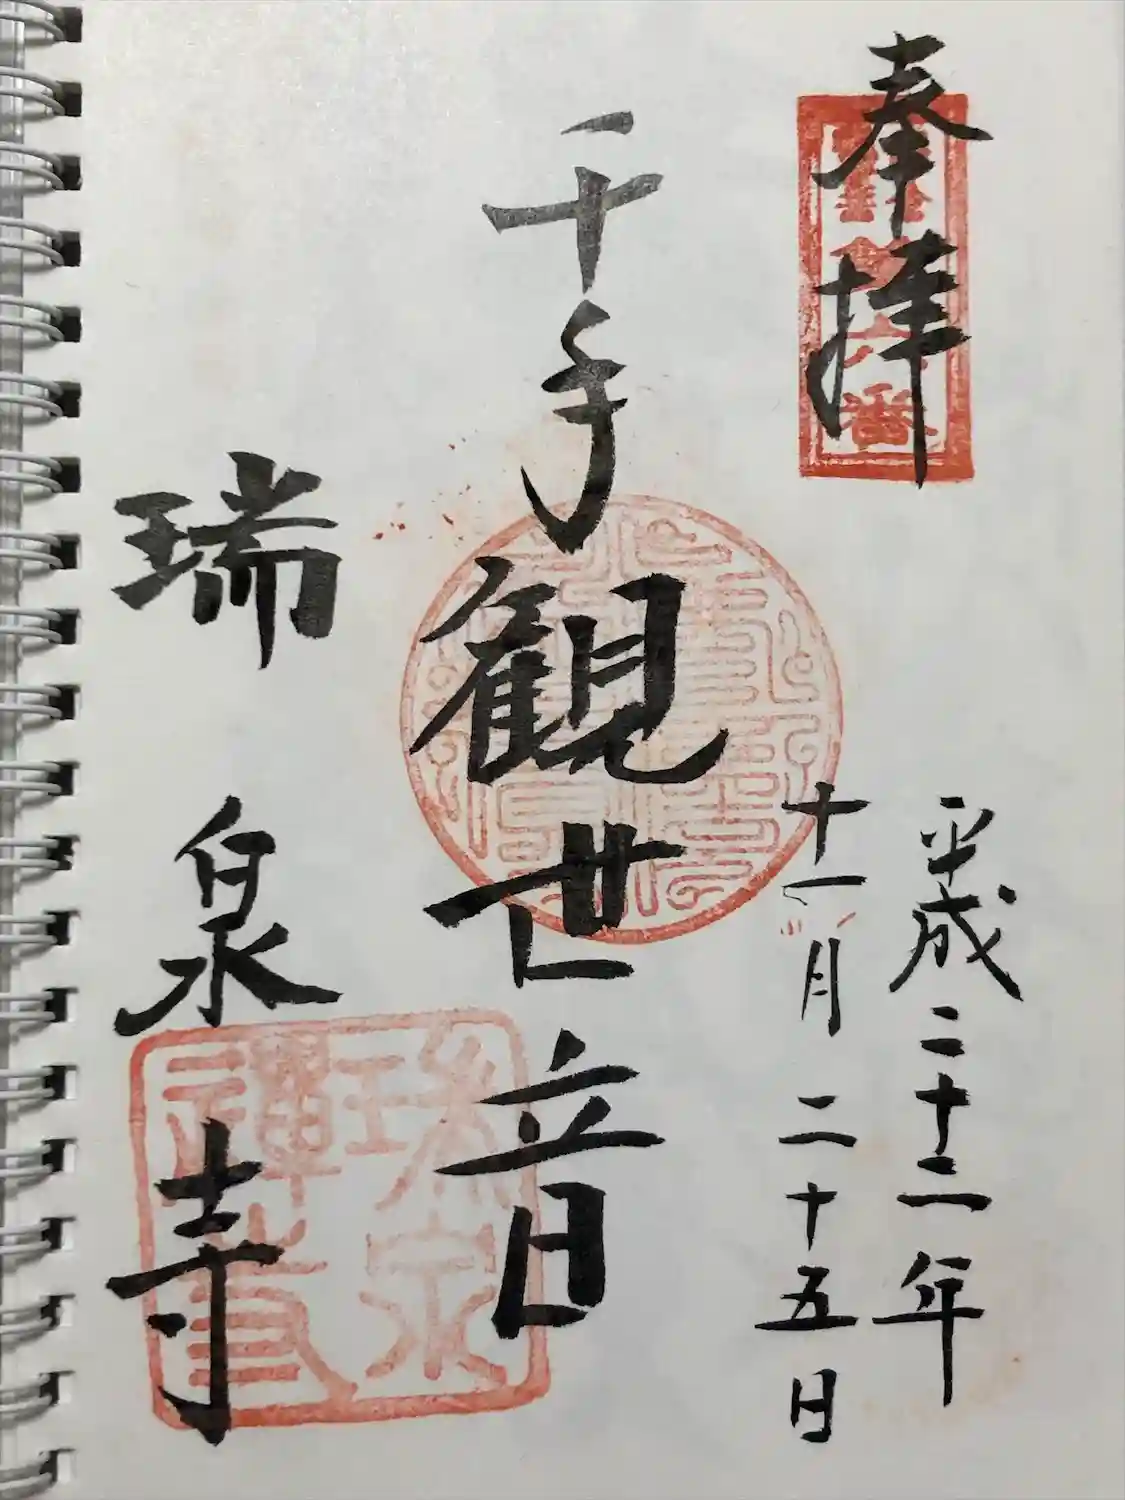 奉拝
平成二十二年
十一月二十五日
千手観世音
瑞泉寺
瑞泉
禪寺